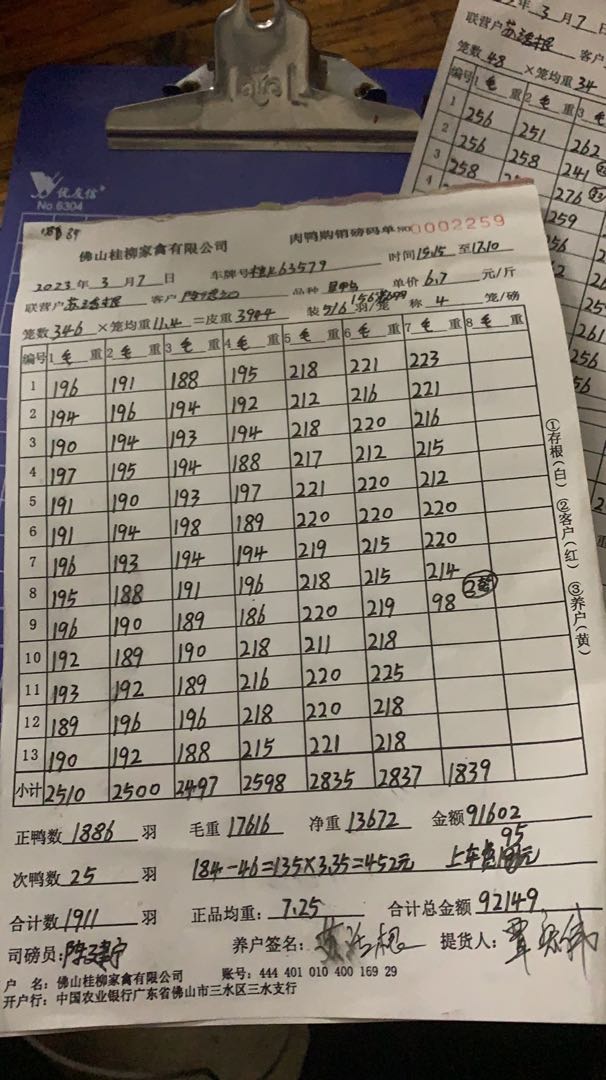 优友信
No.6304
佛山桂柳家禽有限公司 肉鸭购销磅码单 №0002259
2023年3月7日 车牌号桂K63579 时间1515至1710
联营户 客户 品种 单价6.7元/斤
笼数346×笼均重11.4=皮重3944 装5/6 羽/笼 称4笼/磅
编号 1毛重 2毛重 3毛重 4毛重 5毛重 6毛重 7毛重 8毛重
1 196 191 188 195 218 221 223
2 194 196 194 192 212 216 221
3 190 194 193 194 218 220 216
4 197 195 194 188 217 212 215
5 191 190 193 197 221 220 212
6 191 194 198 189 220 220 220
7 196 193 194 194 219 215 220
8 195 188 191 196 218 215 214
9 196 190 189 186 220 219 98
10 192 189 190 218 211 218
11 193 192 189 216 220 225
12 189 196 196 218 220 218
13 190 192 188 215 221 218
小计 2510 2500 2497 2598 2835 2837 1839
①存根(白) ②客户(红) ③养户(黄)
正鸭数1886羽 毛重17616 净重13672 金额91602
95
次鸭数25羽 184-46=135×3.35=452元 上车费
合计数1911羽 正品均重:7.25 合计总金额92149
司磅员: 养户签名: 提货人:
户 名:佛山桂柳家禽有限公司 账号:444 401 010 400 169 29
开户行:中国农业银行广东省佛山市三水区三水支行
年3月7
联营户 客户
笼数48×笼均重34
编号 1毛重 2毛重 3毛
1 256 251 262
2 256 258 241
3 258
4 276
259
256
262
261
256
256